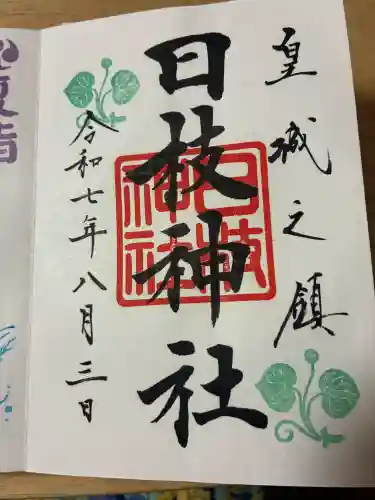 皇城之鎮
日枝神社
日枝神社
令和七年八月三日
夏詣